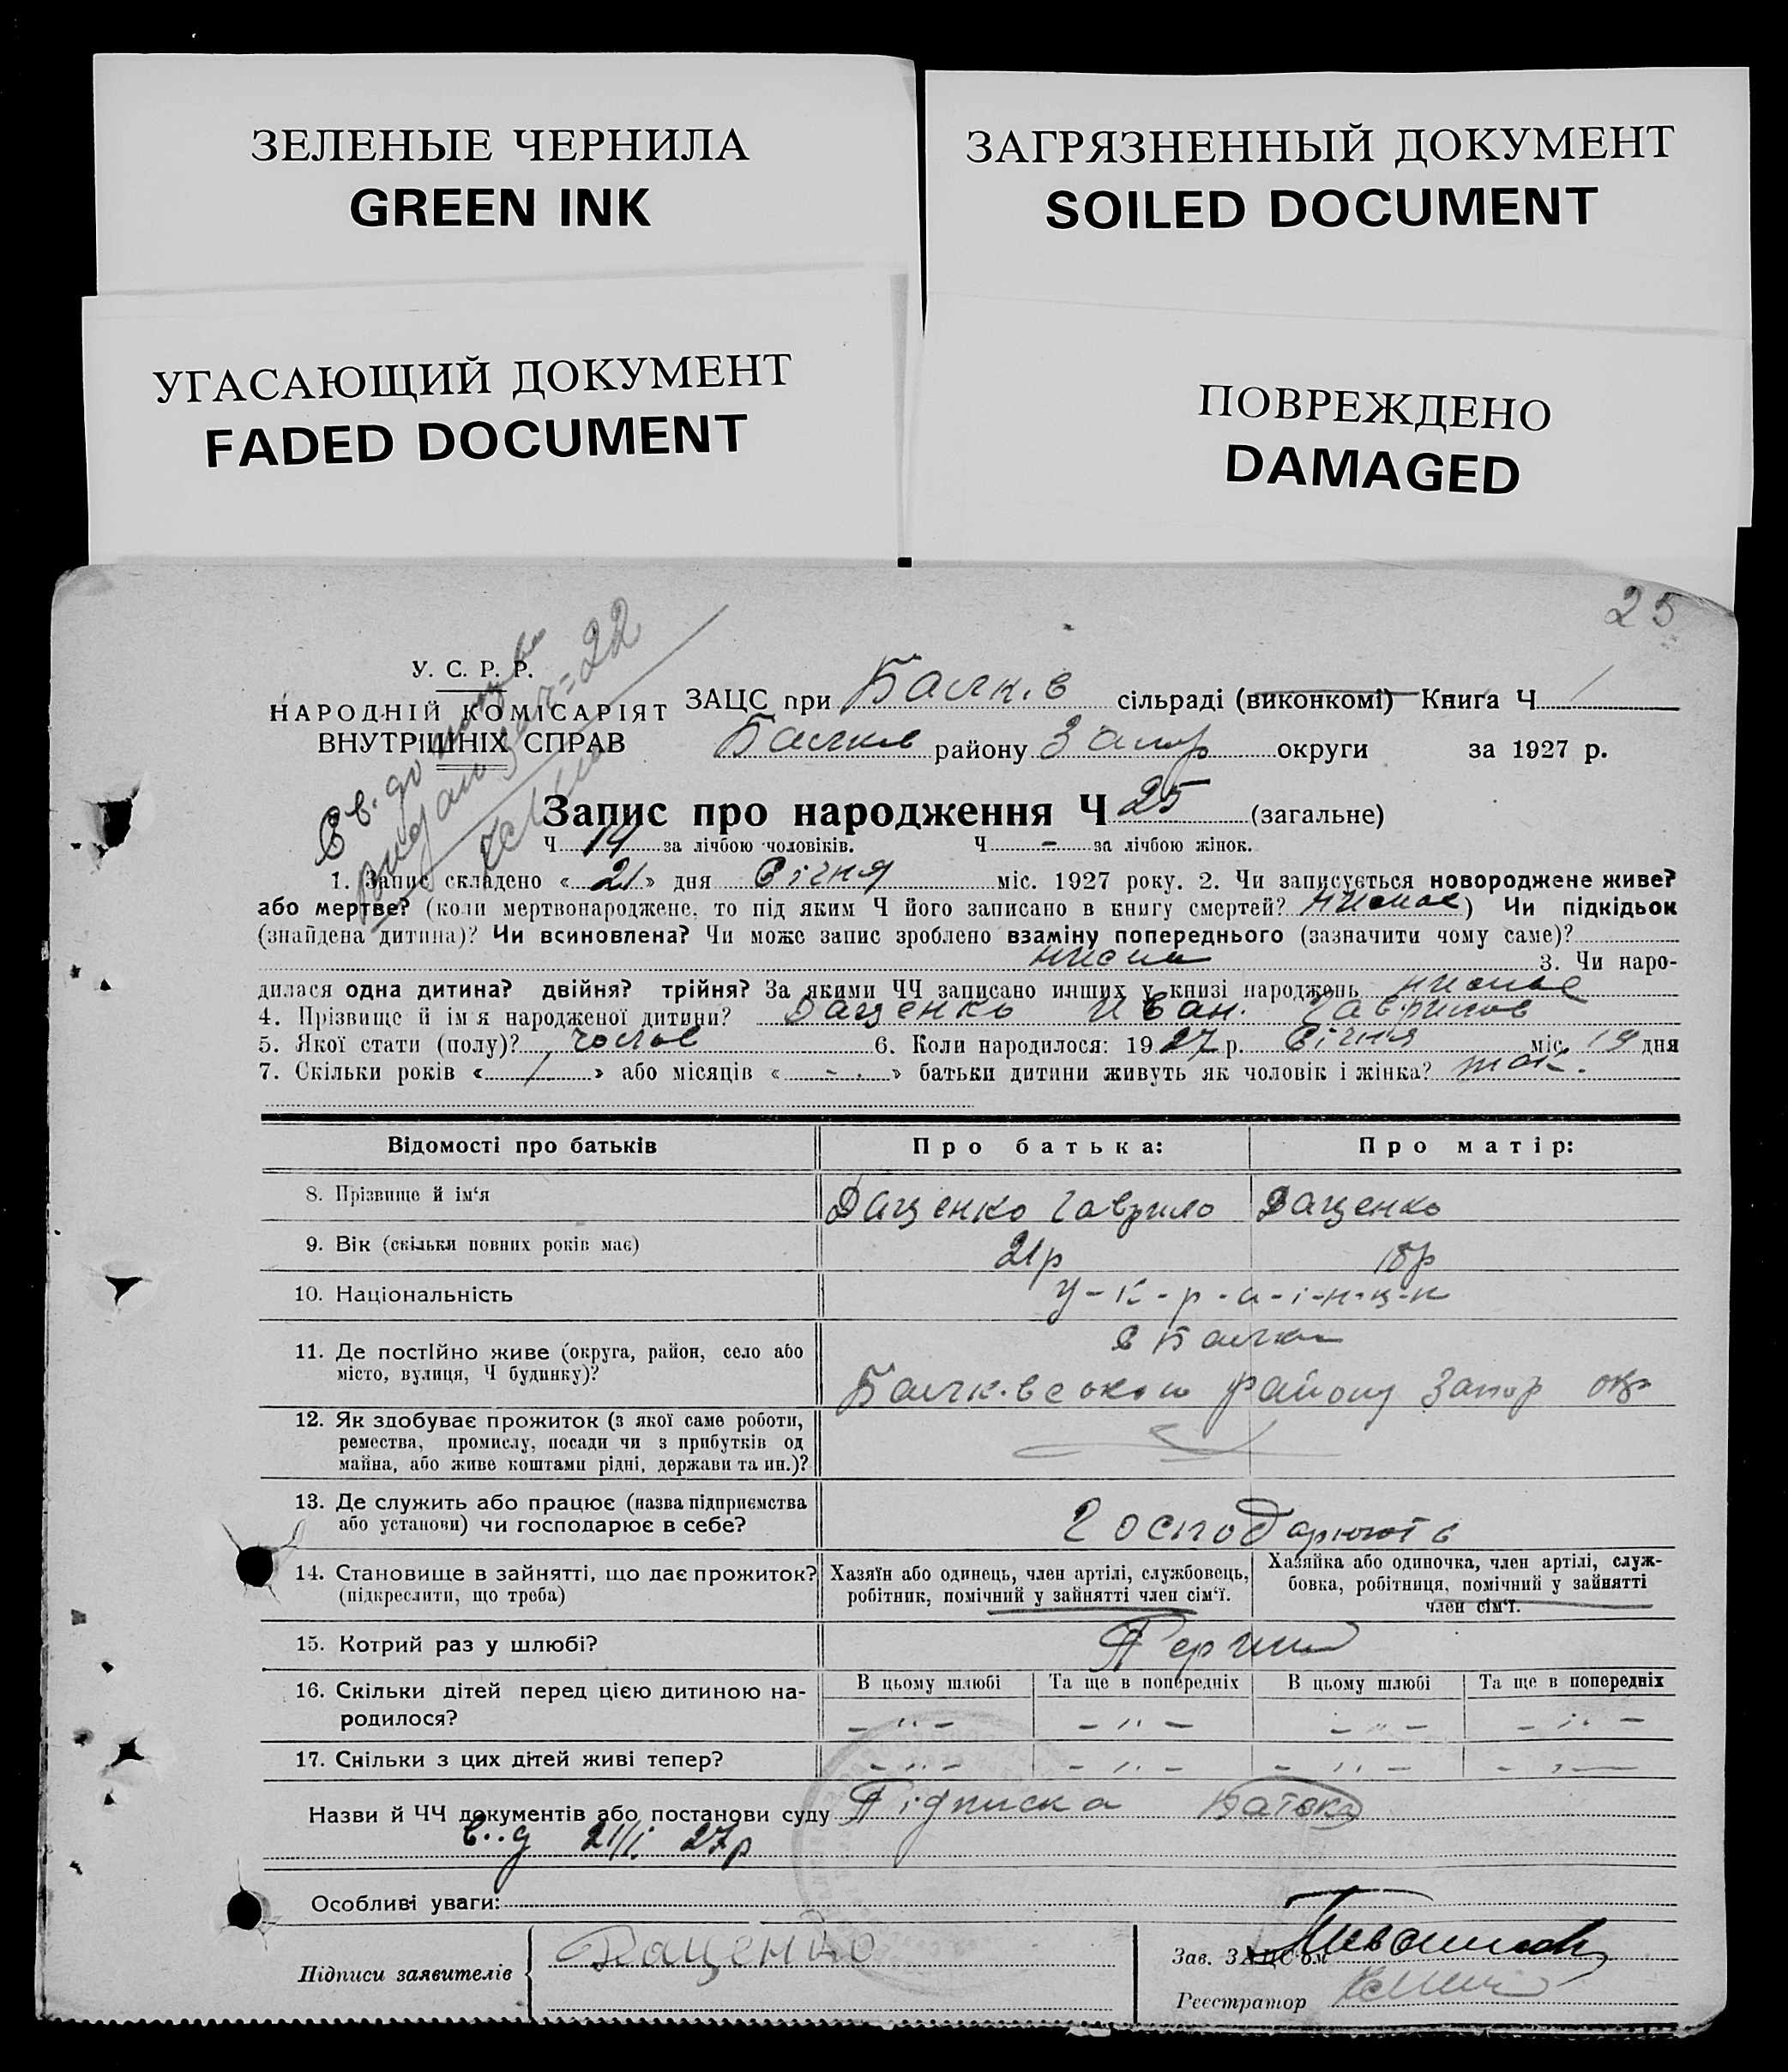 ЗЕЛЕНЫЕ ЧЕРНИЛА
GREEN INK
ЗАГРЯЗНЕННЫЙ ДОКУМЕНТ
SOILED DOCUMENT
УГАСАЮЩИЙ ДОКУМЕНТ
FADED DOCUMENT
ПОВРЕЖДЕНО
DAMAGED
25
У. С. Р. Р.
НАРОДНІЙ КОМІСАРІЯТ
ВНУТРІШНІХ СПРАВ
ЗАЦС при Балк.в сільраді (виконкомі) Книга Ч 1
Балков району Запор округи за 1927 р.
Запис про народження Ч 25 (загальне)
Ч 14 за лічбою чоловіків. Ч - за лічбою жінок.
1. Запис складено « 21 » дня Січня міс. 1927 року. 2. Чи записується новороджене живе?
або мертве? (коли мертвонароджене, то під яким Ч його записано в книгу смертей? ) Чи підкідьок
(знайдена дитина)? Чи всиновлена? Чи може запис зроблено взаміну попереднього (зазначити чому саме)?
3. Чи наро-
дилася одна дитина? двійня? трійня? За якими ЧЧ записано инших у книзі народжень
4. Прізвище й ім'я народженої дитини? Даценко Иван. Гаврилов
5. Якої стати (полу)? 6. Коли народилося: 1927 р. Січня міс. 19 дня
7. Скільки років « 1 » або місяців « - » батьки дитини живуть як чоловік і жінка? так.
Відомості про батьків Про батька: Про матір:
8. Прізвище й ім'я Даценко Гаврило Даценко
9. Вік (скільки повних років має) 21р 18р
10. Національність У-к-р-а-і-н-ц-и
11. Де постійно живе (округа, район, село або
місто, вулиця, Ч будинку)?
с Балки
Балк.вського району Запор окр
12. Як здобуває прожиток (з якої саме роботи,
ремества, промислу, посади чи з прибутків од
майна, або живе коштами рідні, держави та ин.)?
13. Де служить або працює (назва підприємства
або установи) чи господарює в себе?
Господарюють
14. Становище в зайнятті, що дає прожиток?
(підкреслити, що треба)
Хазяїн або одинець, член артілі, службовець,
робітник, помічний у зайнятті член сім'ї.
Хазяйка або одиночка, член артілі, служ-
бовка, робітниця, помічний у зайнятті
член сім'ї.
15. Котрий раз у шлюбі? Перший
16. Скільки дітей перед цією дитиною на-
родилося?
В цьому шлюбі Та ще в попередніх В цьому шлюбі Та ще в попередніх
- „ - - „ - - „ - - „ -
17. Скільки з цих дітей живі тепер? - „ - - „ - - „ - - „ -
Назви й ЧЧ документів або постанови суду Підписка Батька
21/I 27р
Особливі уваги:
Підписи заявителів Даценко
Зав. ЗАЦС'ом
Реєстратор